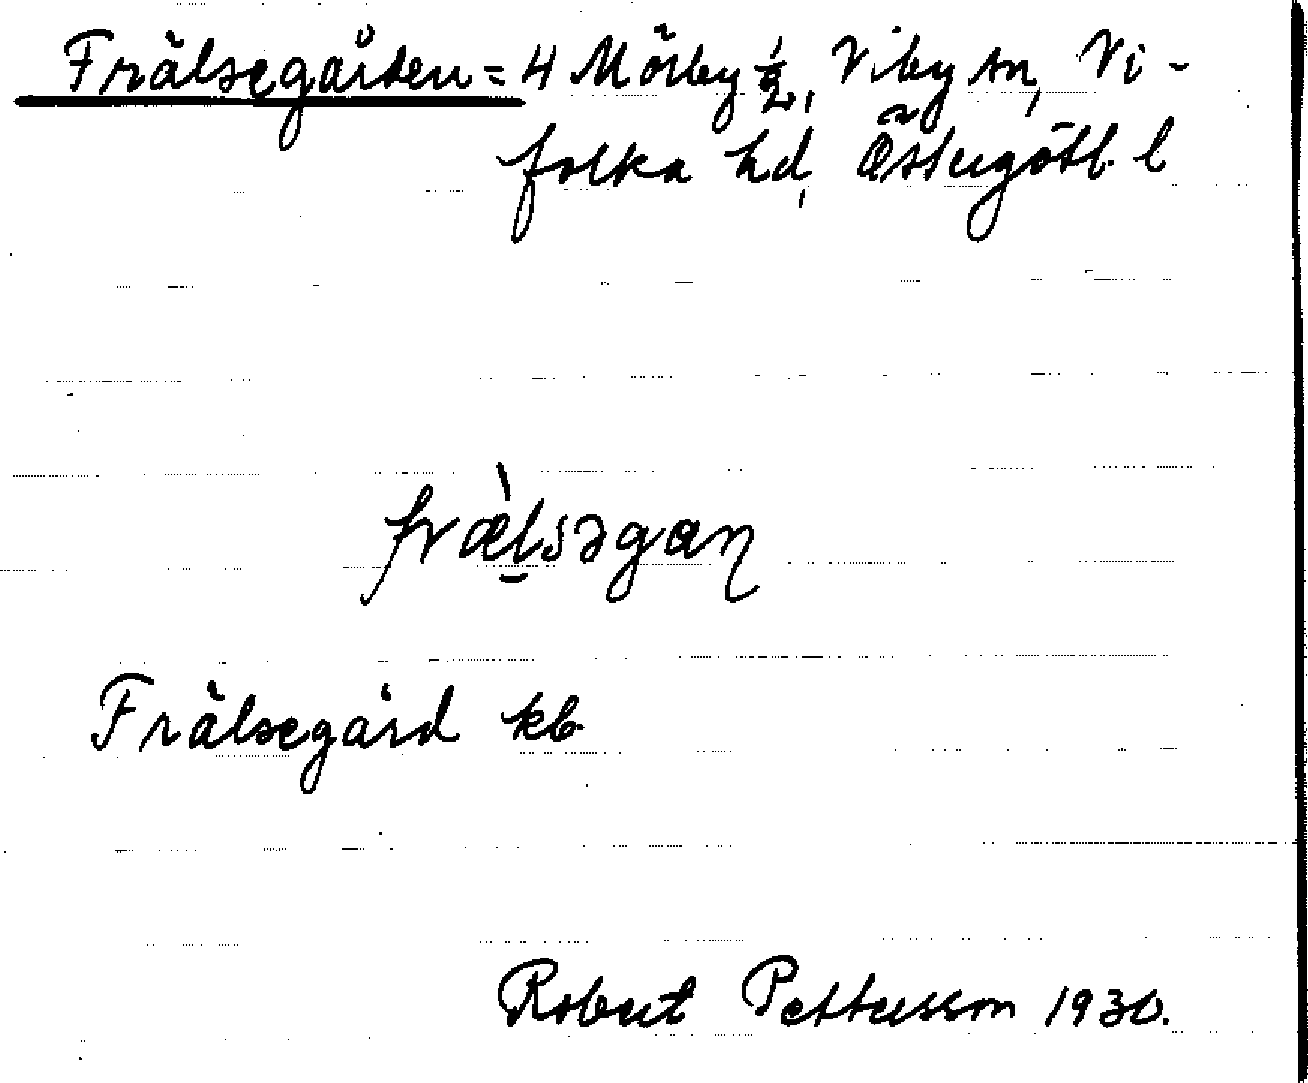 Frälsegården = 4 Mörby ½, Viby sn, Vi-
folka hd, Östergötl. l
fræ̀lsəgaɳ
Frälsegård kb
Robert Pettersson 1930.